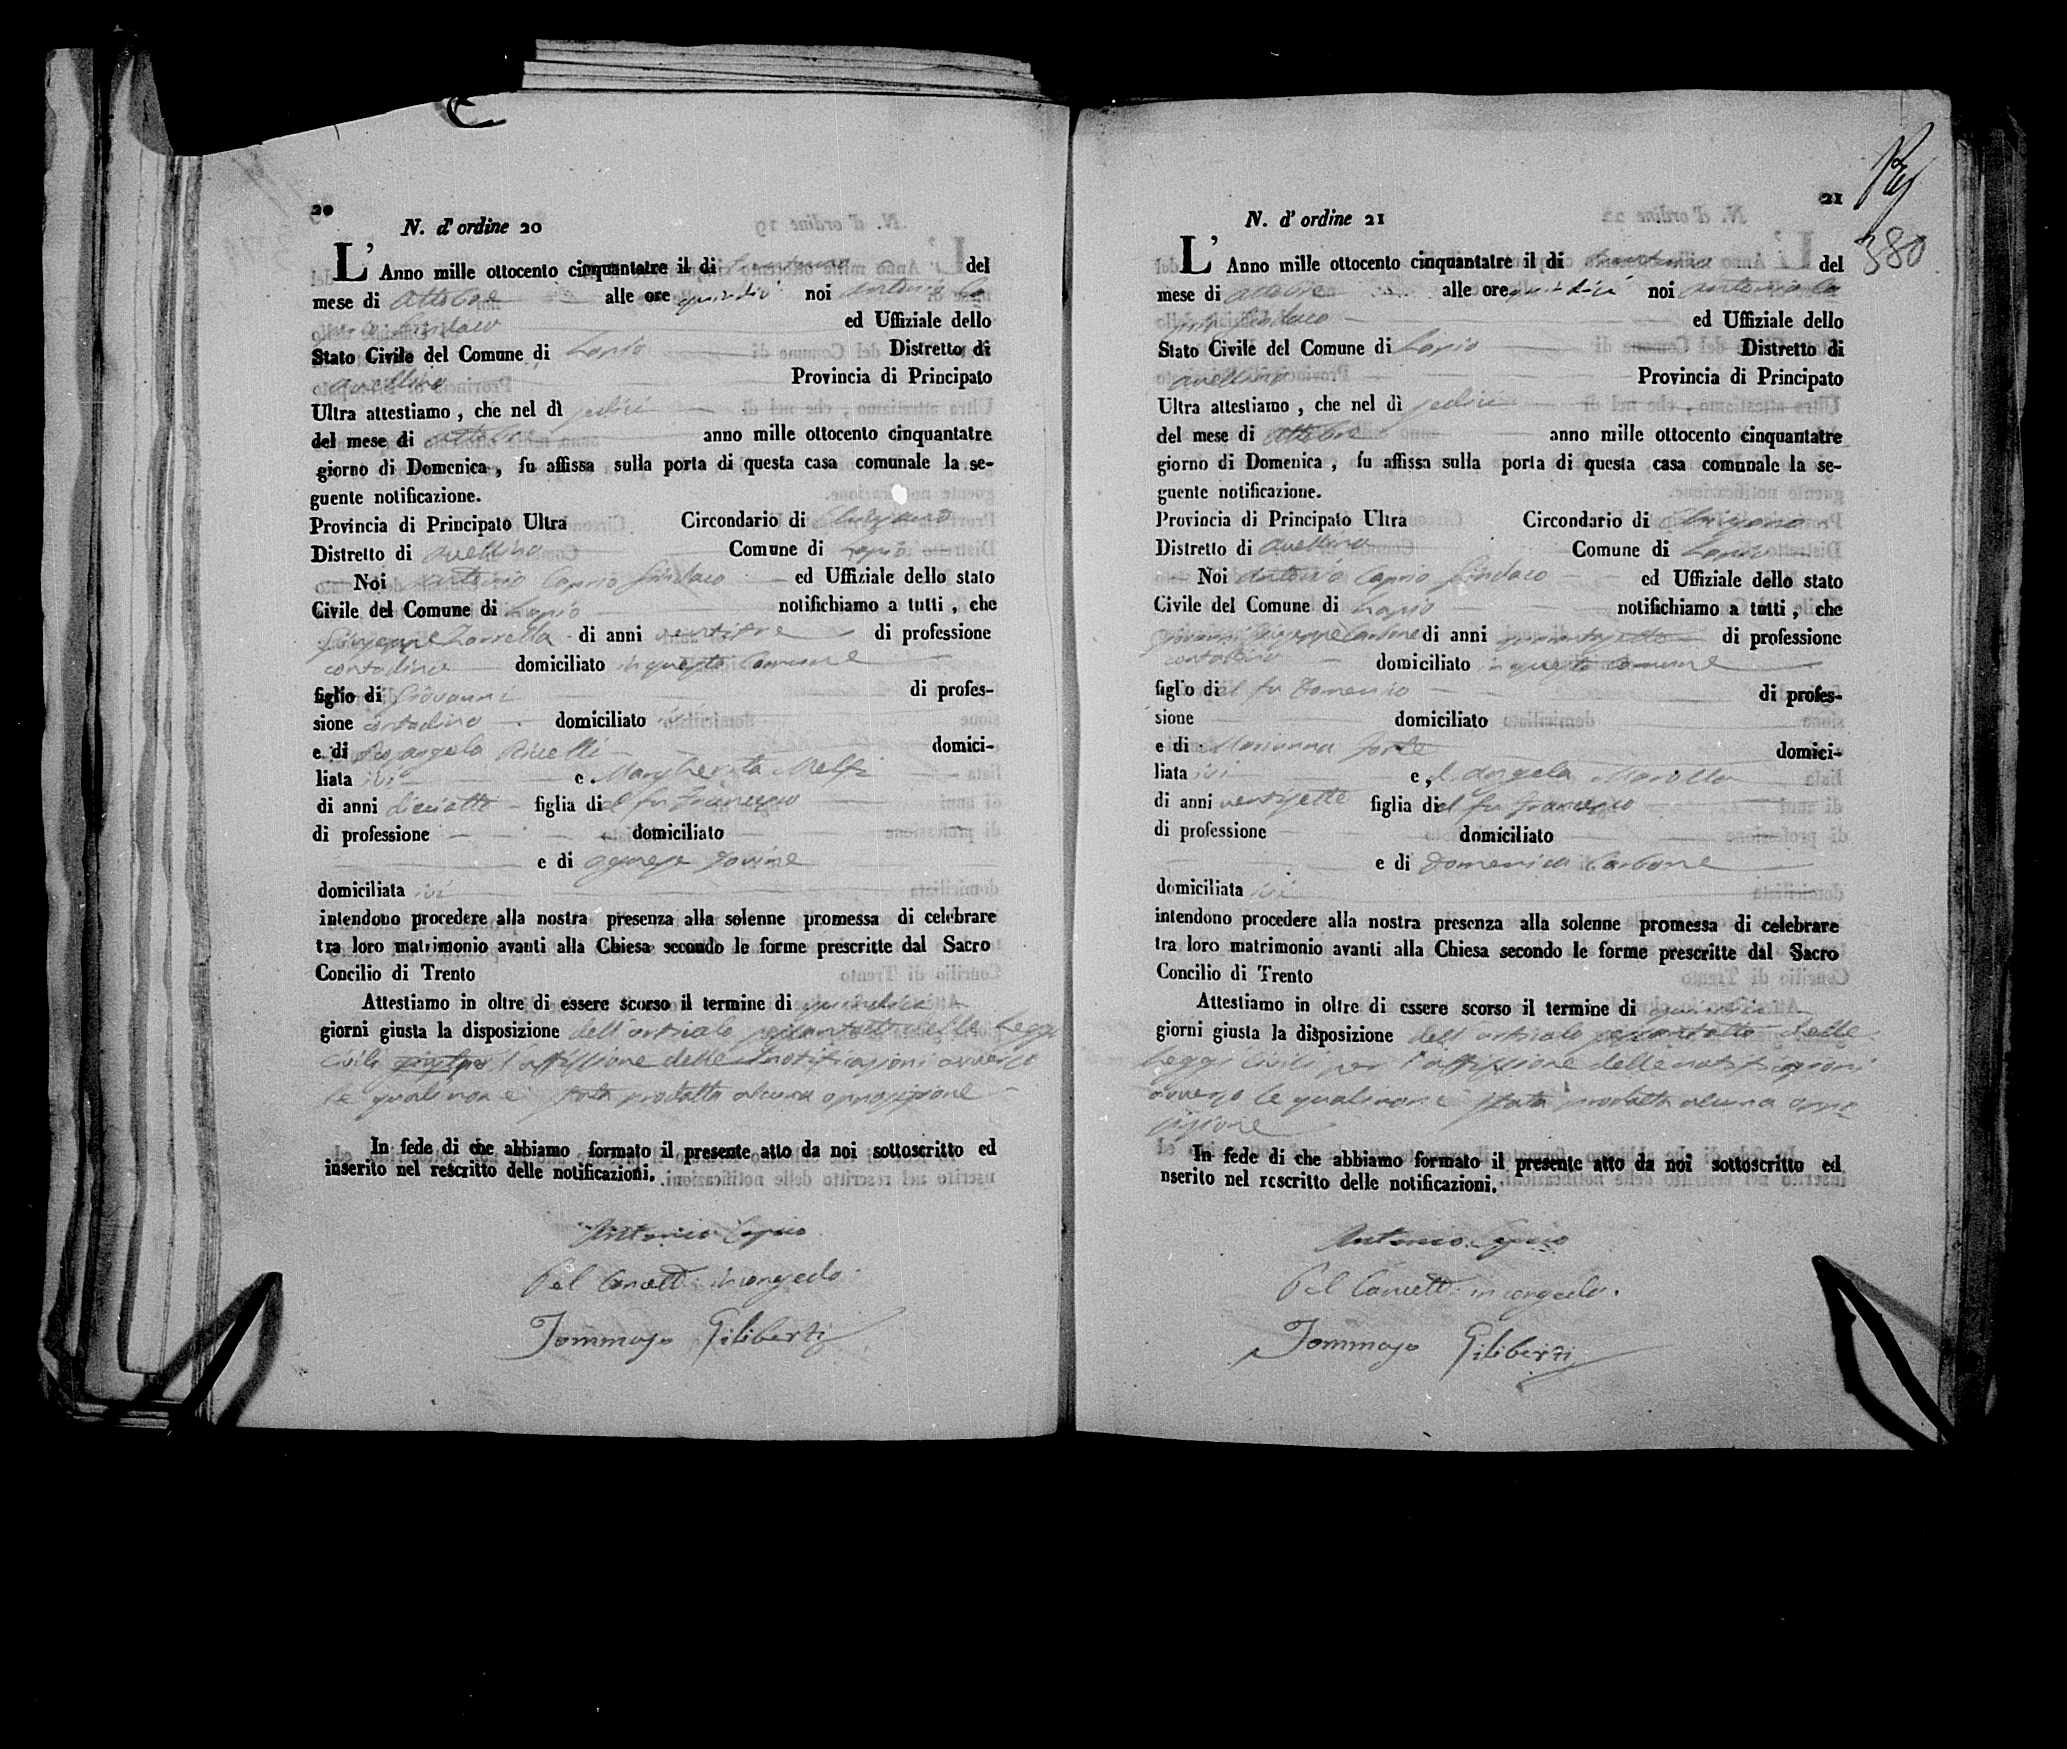 20
N. d' ordine 20
L' Anno mille ottocento cinquantatre il di trentuno del
mese di Ottobre alle ore quindici noi Antonio Ca
prio Sindaco ed Uffiziale dello
Stato Civile del Comune di Lapio Distretto di
Avellino Provincia di Principato
Ultra attestiamo , che nel dì sedici
del mese di Ottobre anno mille ottocento cinquantatre
giorno di Domenica , fu affissa sulla porta di questa casa comunale la se-
guente notificazione.
Provincia di Principato Ultra Circondario di
Distretto di Avellino Comune di Lapio
Noi Antonio Caprio Sindaco ed Uffiziale dello stato
Civile del Comune di Lapio notifichiamo a tutti , che
Giuseppe Zarrella di anni ventitre di professione
contadino domiciliato in questo Comune
figlio di Giovanni di profes-
sione contadino domiciliato ivi
e di Rosangela Ricelli domici-
liata ivi e Margherita Melfi
di anni dieciotto figlia di el fu Francesco
di professione domiciliato
e di Agnese Iovine
domiciliata ivi
intendono procedere alla nostra presenza alla solenne promessa di celebrare
tra loro matrimonio avanti alla Chiesa secondo le forme prescritte dal Sacro
Concilio di Trento
Attestiamo in oltre di essere scorso il termine di quindici
giorni giusta la disposizione dell'articolo sessantotto delle Leggi
Civili l'affissione delle notificazioni avverso
le quali non è stata prodotta alcuna opposizione
In fede di che abbiamo formato il presente atto da noi sottoscritto ed
inserito nel rescritto delle notificazioni.
Antonio Caprio
Pel Cancell: in congedo
Tommaso Giliberti
21
380
N. d' ordine 21
L' Anno mille ottocento cinquantatre il di trentuno del
mese di Ottobre alle ore quindici noi Antonio Ca
prio Sindaco ed Uffiziale dello
Stato Civile del Comune di Lapio Distretto di
Avellino Provincia di Principato
Ultra attestiamo , che nel dì sedici
del mese di Ottobre anno mille ottocento cinquantatre
giorno di Domenica , fu affissa sulla porta di questa casa comunale la se-
guente notificazione.
Provincia di Principato Ultra Circondario di
Distretto di Avellino Comune di Lapio
Noi Antonio Caprio Sindaco ed Uffiziale dello stato
Civile del Comune di Lapio notifichiamo a tutti , che
Giovanni Giuseppe Carbone di anni di professione
contadino domiciliato in questo Comune
figlio di el fu Domenico di profes-
sione domiciliato
e di Marianna Forte domici-
liata ivi e , Angela Marolla
di anni ventisette figlia di el fu Francesco
di professione domiciliato
e di Domenica Carbone
domiciliata ivi
intendono procedere alla nostra presenza alla solenne promessa di celebrare
tra loro matrimonio avanti alla Chiesa secondo le forme prescritte dal Sacro
Concilio di Trento
Attestiamo in oltre di essere scorso il termine di quindici
giorni giusta la disposizione dell'articolo sessantotto delle
Leggi Civili per l'affissione delle notificazioni
avverso le quali non è stata prodotta alcuna oppo
sizione
In fede di che abbiamo formato il presente atto da noi sottoscritto ed
nserito nel rescritto delle notificazioni.
Antonio Caprio
Pel Cancell: in congedo.
Tommaso Giliberti